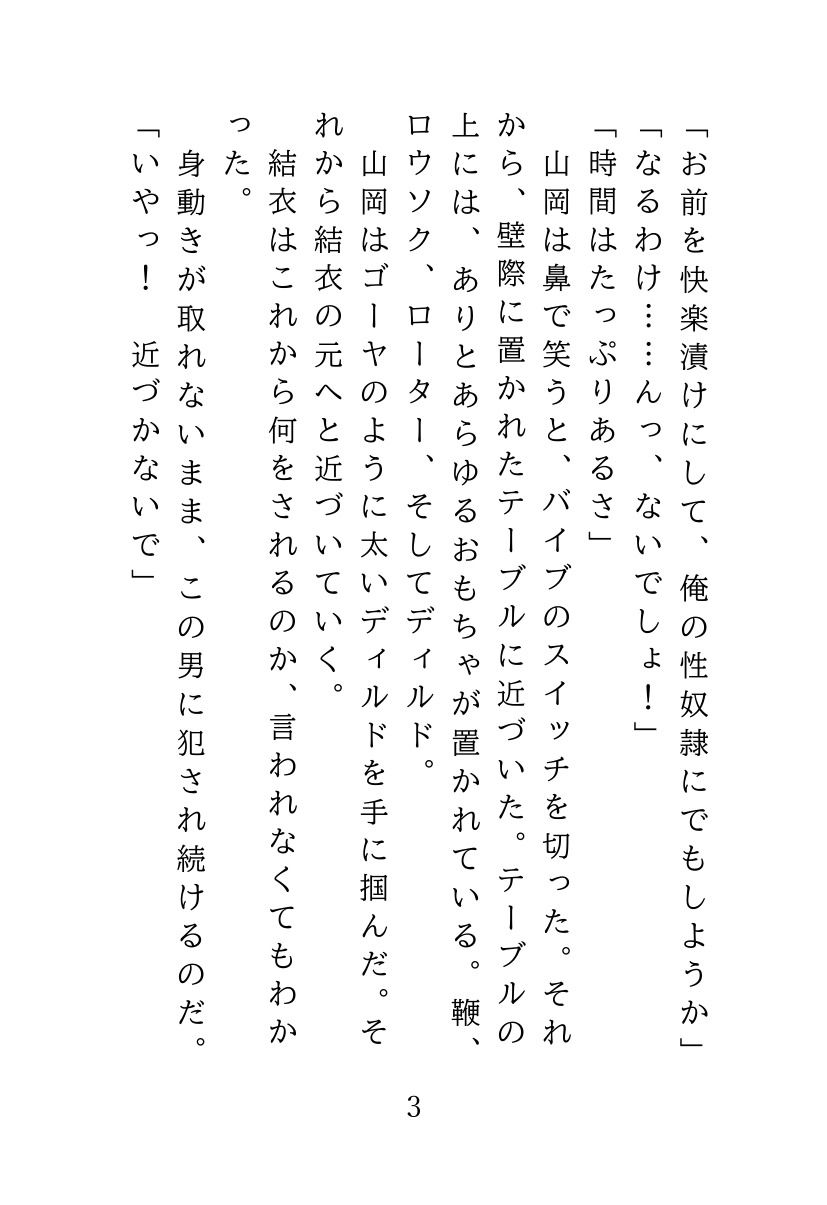 「お前を快楽漬けにして、俺の性奴隷にでもしようか」
「なるわけ……んっ、ないでしょ！」
「時間はたっぷりあるさ」
　山岡は鼻で笑うと、バイブのスイッチを切った。それ
から、壁際に置かれたテーブルに近づいた。テーブルの
上には、ありとあらゆるおもちゃが置かれている。鞭、
ロウソク、ローター、そしてディルド。
　山岡はゴーヤのように太いディルドを手に掴んだ。そ
れから結衣の元へと近づいていく。
　結衣はこれから何をされるのか、言われなくてもわか
った。
　身動きが取れないまま、この男に犯され続けるのだ。
「いやっ！　近づかないで」
3